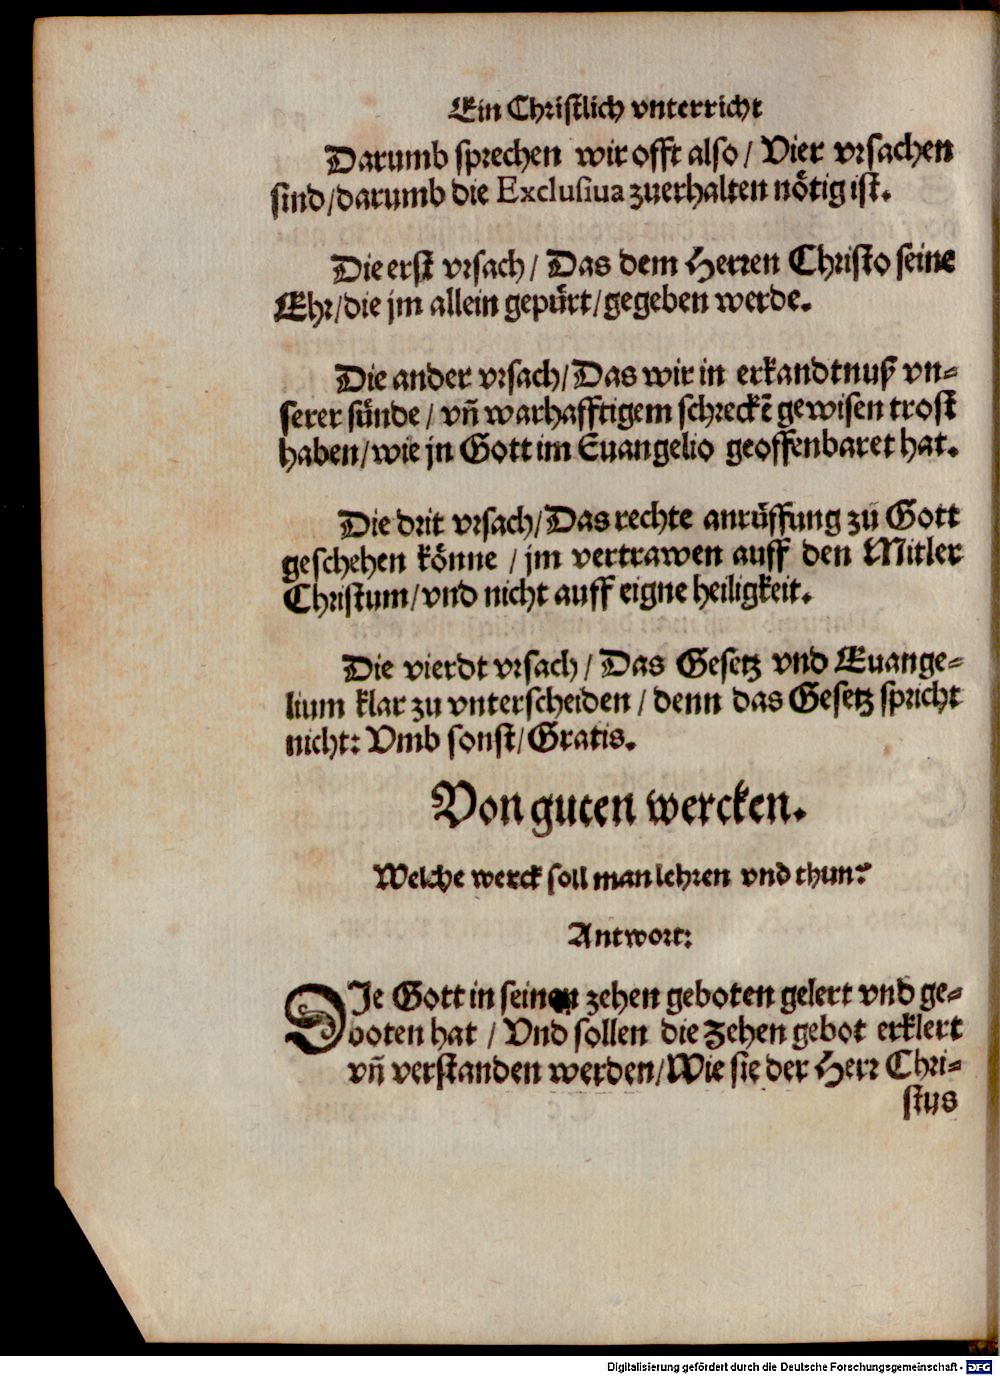 Ein Christlich vnterricht
Darumb sprechen wir offt also / Vier vrsachen
sind/darumb die Exclusiua zuerhalten nötig ist.
Die erst vrsach / Das dem Herren Christo seine
Ehr/die jm allein gepürt/gegeben werde.
Die ander vrsach/Das wir in erkandtnuß vn-
serer sünde / vñ warhafftigem schreckẽ gewisen trost
haben/wie jn Gott im Euangelio geoffenbaret hat.
Die drit vrsach/Das rechte anrüffung zů Gott
geschehen könne / jm vertrawen auff den Mitler
Christum/vnd nicht auff eigne heiligkeit.
Die vierdt vrsach / Das Gesetz vnd Euange-
lium klar zu vnterscheiden / denn das Gesetz spricht
nicht: Vmb sonst/Gratis.
Von guten wercken.
Welche werck soll man lehren vnd thun?
Antwort:
DJe Gott in seinen zehen geboten gelert vnd ge-
boten hat / Vnd sollen die zehen gebot erklert
vñ verstanden werden/Wie sie der Herr Chri-
stus
Digitalisierung gefördert durch die Deutsche Forschungsgemeinschaft - DFG